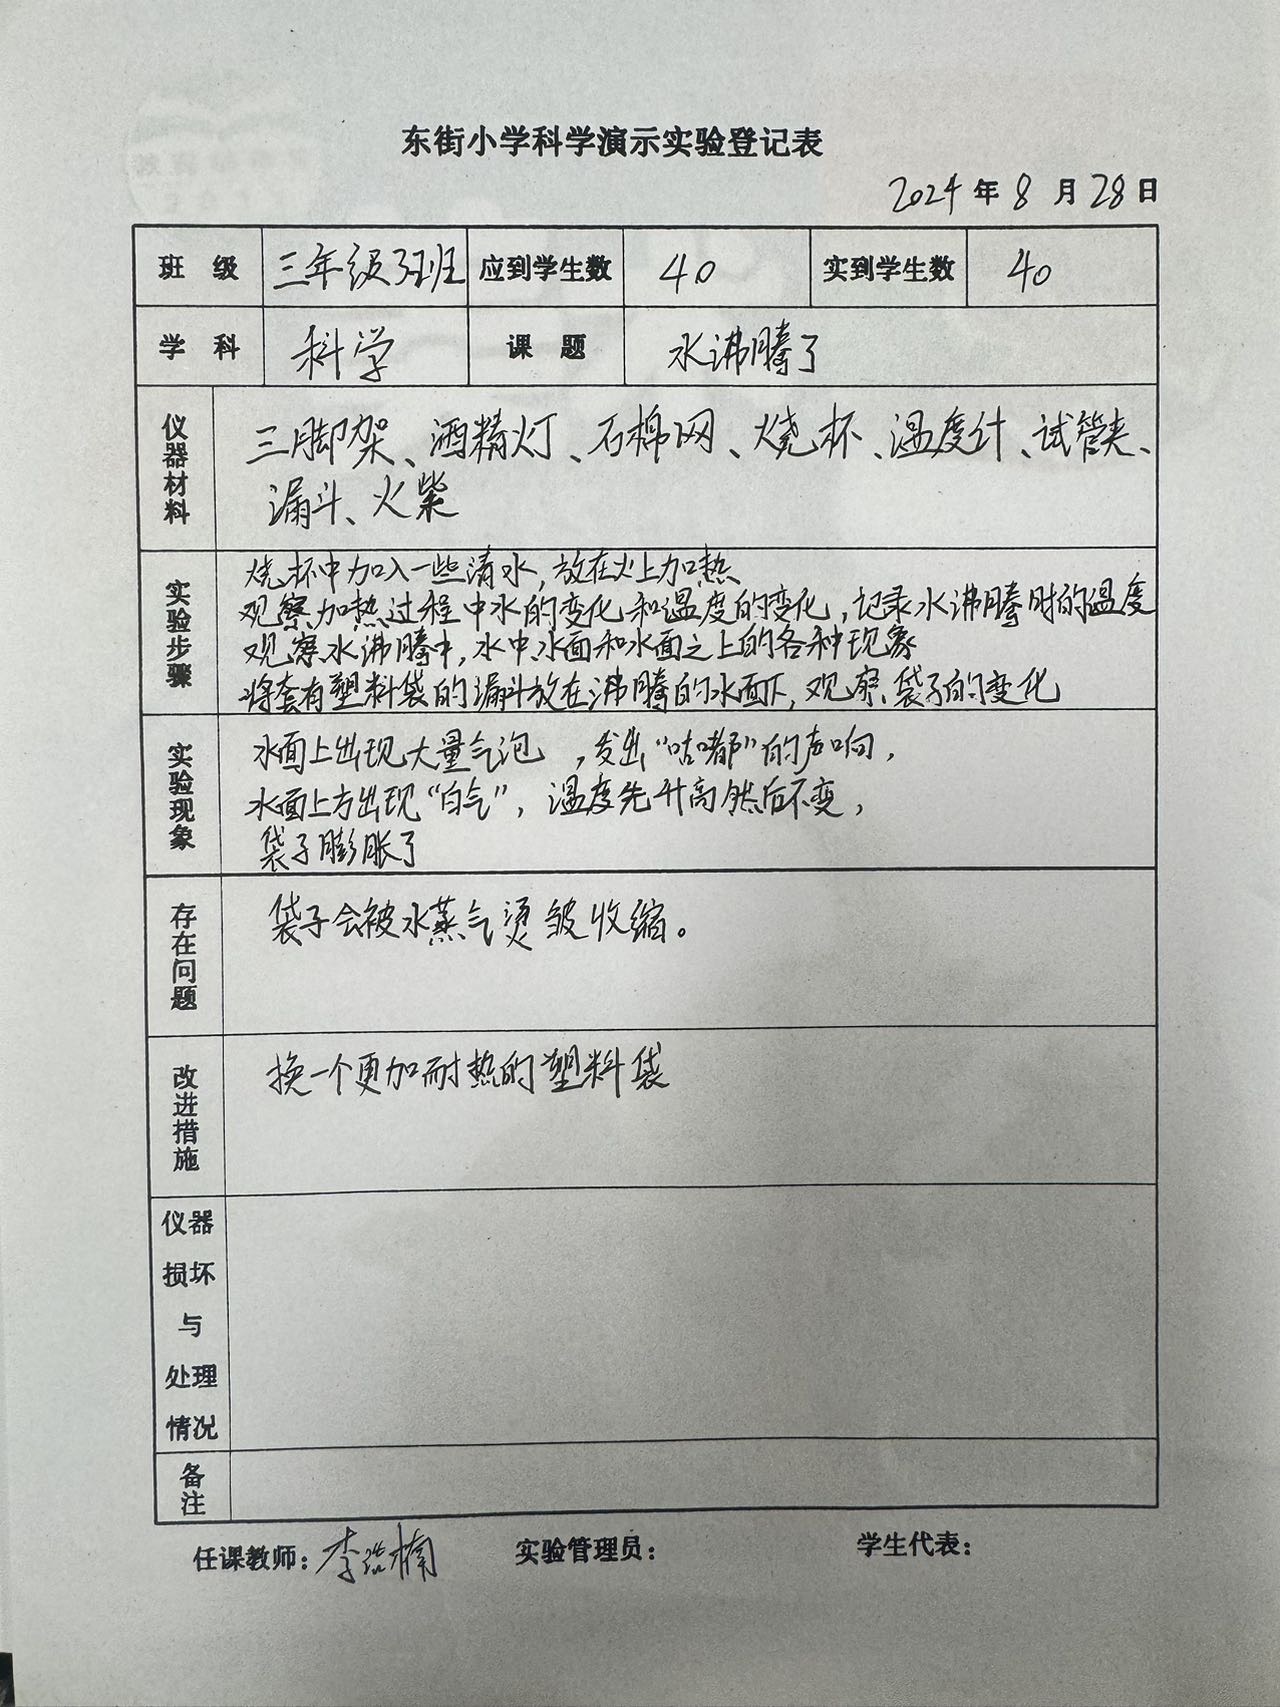 东街小学科学演示实验登记表
2024年8月28日
班 级 三年级3班 应到学生数 40 实到学生数 40
学 科 科学 课 题 水沸腾了
仪器材料 三脚架、酒精灯、石棉网、烧杯、温度计、试管夹、
漏斗、火柴
实验步骤 烧杯中加入一些清水,放在火上加热
观察加热过程中水的变化和温度的变化,记录水沸腾时的温度
观察水沸腾中,水中、水面和水面之上的各种现象
将套有塑料袋的漏斗放在沸腾的水面下,观察袋子的变化
实验现象 水面上出现大量气泡 ,发出“咕嘟”的声响,
水面上方出现“白气”,温度先升高然后不变,
袋子膨胀了
存在问题 袋子会被水蒸气烫皱收缩。
改进措施 换一个更加耐热的塑料袋
仪器
损坏
与
处理
情况
备注
任课教师: 李 楠 实验管理员: 学生代表: